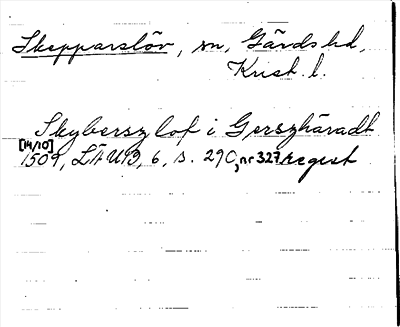 Skepparslöv, sn, Gärds hd,
Krist. l.
Skyberszlof i Gerszhäradt
[14/10]
1509, LÄUB, 6, s. 290, nr 327 regest